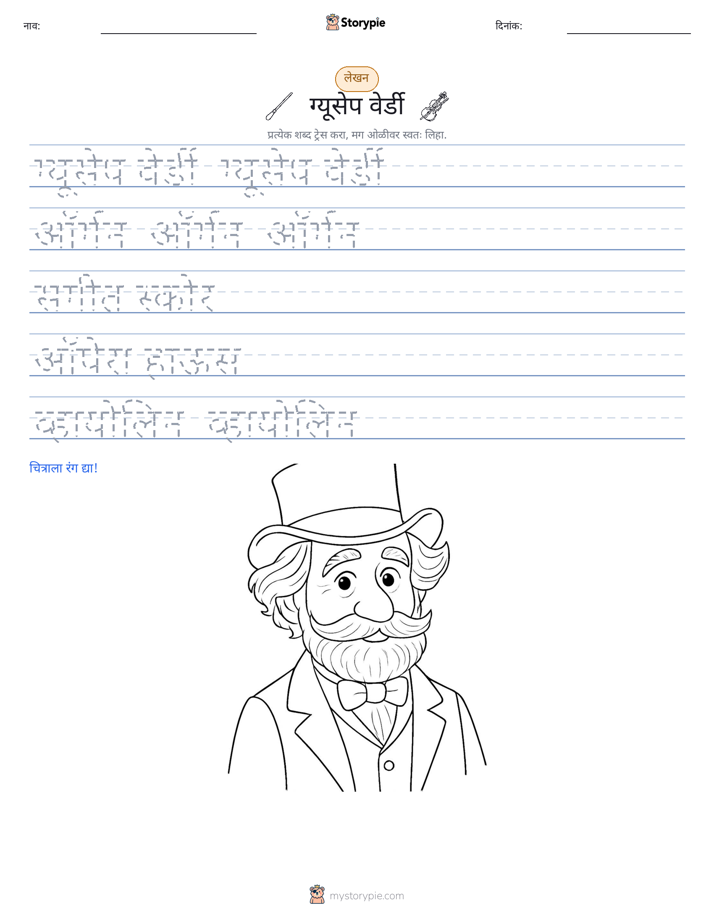 नाव: Storypie दिनांक:
लेखन
ग्यूसेप वेर्डी
प्रत्येक शब्द ट्रेस करा, मग ओळीवर स्वतः लिहा.
ग्यूसेप वेर्डी ग्यूसेप वेर्डी
ऑर्गन ऑर्गन ऑर्गन
संगीत स्कोर
ऑपेरा हाऊस
व्हायोलिन व्हायोलिन
चित्राला रंग द्या!
mystorypie.com